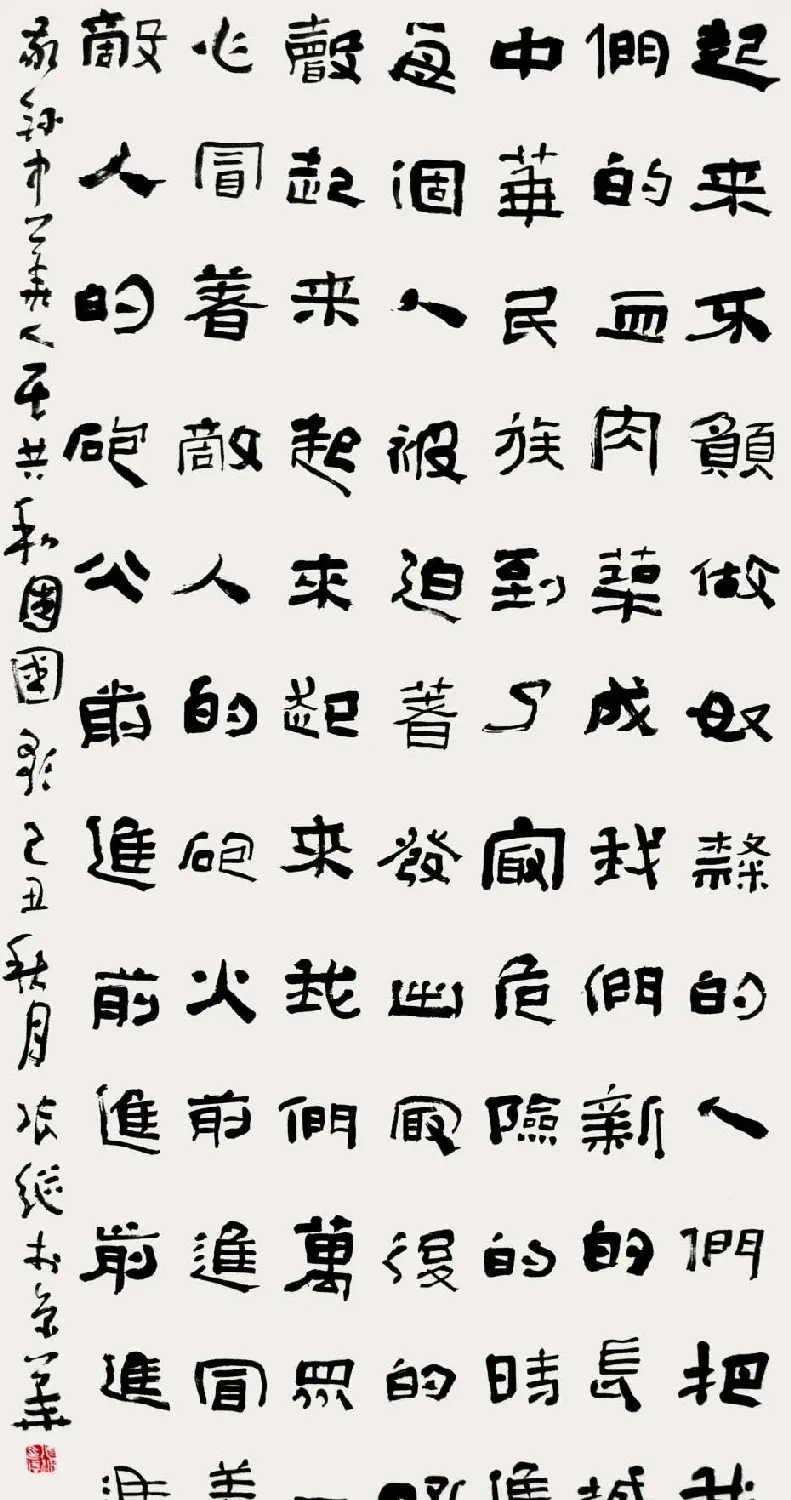 起来不願做奴隸的人們把我
們的血肉築成我們新的長城
中華民族到了最危險的時候
每個人被迫著發出最後的吼
聲起来起來起来我們萬眾一
心冒著敵人的砲火前進冒著
敵人的砲火前進前進前進進
敬錄中華人民共和國國歌己丑秋月張繼於京華